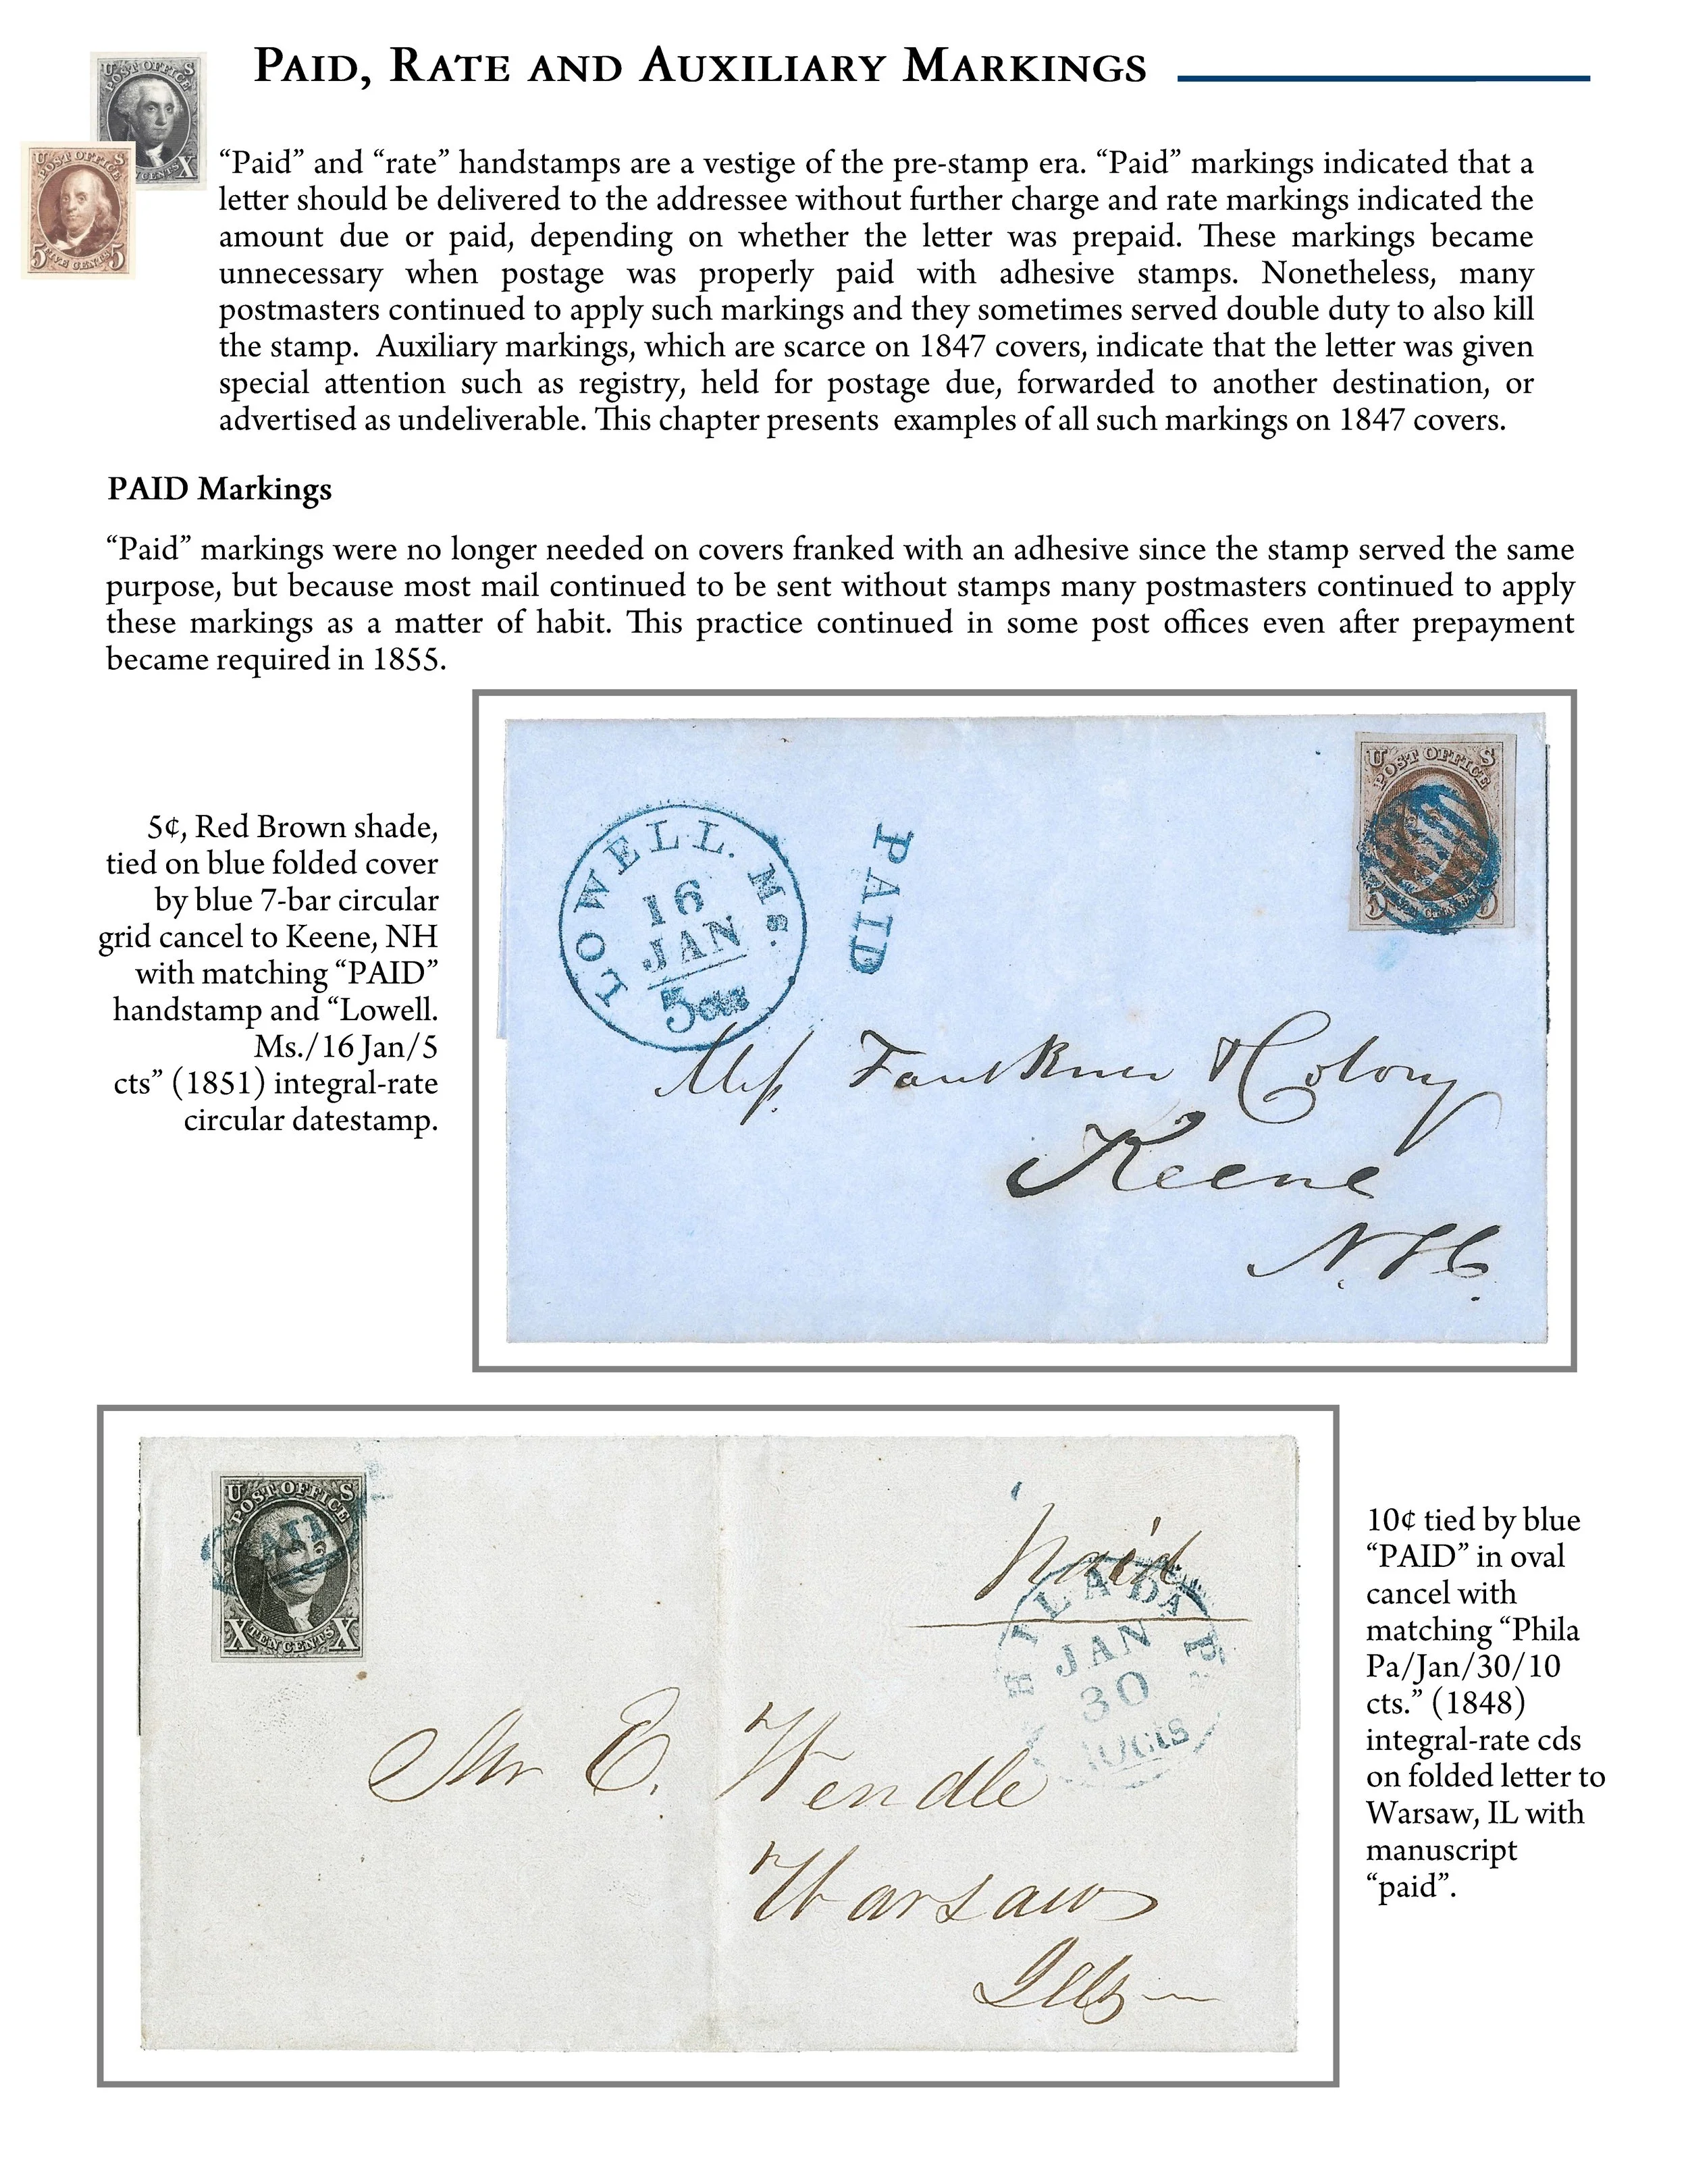 PAID, RATE AND AUXILIARY MARKINGS
U S
POST OFFICE
CENTS X
U S
POST OFFICE
5 FIVE CENTS 5
“Paid” and “rate” handstamps are a vestige of the pre-stamp era. “Paid” markings indicated that a
letter should be delivered to the addressee without further charge and rate markings indicated the
amount due or paid, depending on whether the letter was prepaid. These markings became
unnecessary when postage was properly paid with adhesive stamps. Nonetheless, many
postmasters continued to apply such markings and they sometimes served double duty to also kill
the stamp. Auxiliary markings, which are scarce on 1847 covers, indicate that the letter was given
special attention such as registry, held for postage due, forwarded to another destination, or
advertised as undeliverable. This chapter presents examples of all such markings on 1847 covers.
PAID Markings
“Paid” markings were no longer needed on covers franked with an adhesive since the stamp served the same
purpose, but because most mail continued to be sent without stamps many postmasters continued to apply
these markings as a matter of habit. This practice continued in some post offices even after prepayment
became required in 1855.
5¢, Red Brown shade,
tied on blue folded cover
by blue 7-bar circular
grid cancel to Keene, NH
with matching “PAID”
handstamp and “Lowell.
Ms./16 Jan/5
cts” (1851) integral-rate
circular datestamp.
LOWELL. Ms.
16
JAN
5cts
PAID
U S
POST OFFICE
Faulkner & Colony
Keene
N.H.
U S
POST OFFICE
X TEN CENTS X
PAID
paid
HILADA Pa
JAN
30
10cts
Mr E. Wendle
Warsaw
Ills
10¢ tied by blue
“PAID” in oval
cancel with
matching “Phila
Pa/Jan/30/10
cts.” (1848)
integral-rate cds
on folded letter to
Warsaw, IL with
manuscript
“paid”.